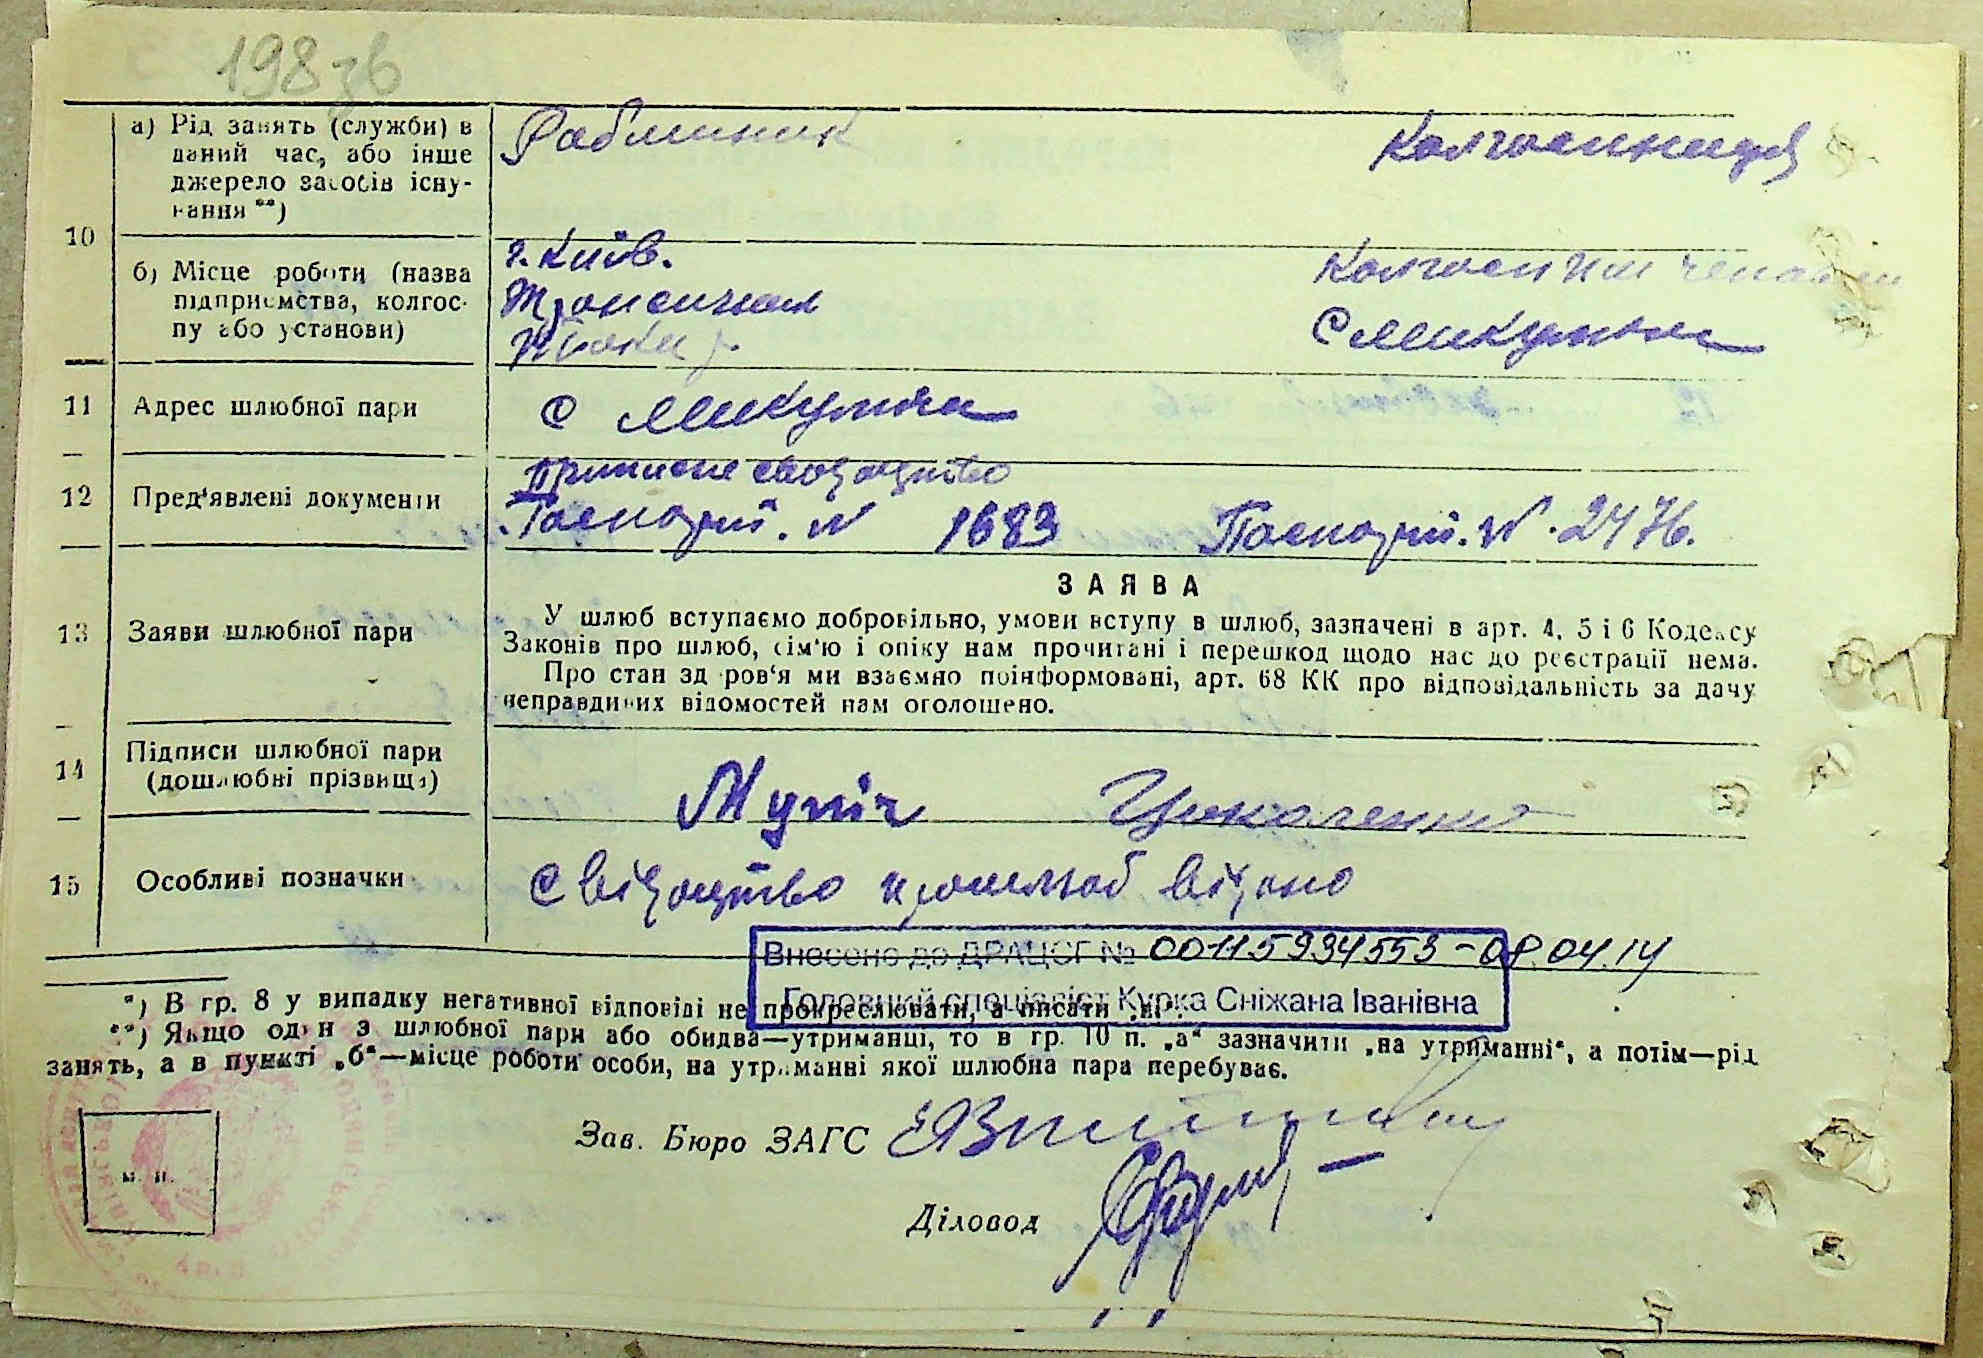 198 зв
а) Рід занять (служби) в Робітник Колгоспниця
даний час, або інше
джерело засобів існу-
вання **)
10
б) Місце роботи (назва м. Київ. Колгосп
підприємства, колгос- с Микуличи
пу або установи)
11 Адрес шлюбної пари с Микуличи
Приписне свідоцтво
12 Пред'явлені документи Посвідч. № 1683 Посвідч. № 2476.
ЗАЯВА
13 Заяви шлюбної пари У шлюб вступаємо добровільно, умови вступу в шлюб, зазначені в арт. 4, 5 і 6 Кодексу
Законів про шлюб, сім'ю і опіку нам прочитані і перешкод щодо нас до реєстрації нема.
Про стан здоров'я ми взаємно поінформовані, арт. 68 КК про відповідальність за дачу
неправдивих відомостей нам оголошено.
14 Підписи шлюбної пари
(дошлюбні прізвища)
15 Особливі позначки Свідоцтво про шлюб видано
Внесено до ДРАЦСГ № 00115934553 - 08.04.14
Головний спеціаліст Курка Сніжана Іванівна
*) В гр. 8 у випадку негативної відповіді не прокреслювати, а писати „ні“.
**) Якщо один з шлюбної пари або обидва—утриманці, то в гр. 10 п. „а“ зазначити „на утриманні“, а потім—рід
занять, а в пункті „б“—місце роботи особи, на утриманні якої шлюбна пара перебуває.
Зав. Бюро ЗАГС
м. п.
Діловод